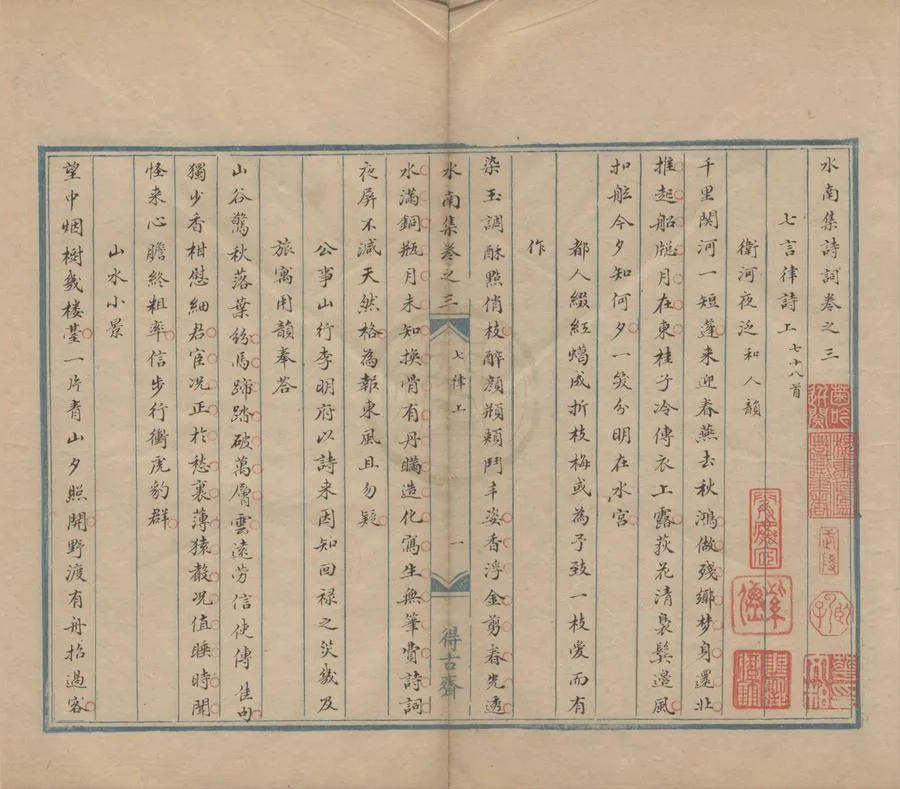 水南集詩詞卷之三
七言律詩上 七十八首
衛河夜泛和人韻
千里関河一短蓬来迎春燕去秋鴻做残鄉梦身還北
推起船牕月在東桂子冷傳衣上露荻花清裊鬂邉風
扣舷今夕知何夕一笑分明在水宮
都人綴紅蠟成折枝梅或為予致一枝愛而有
作
染玉調酥點俏枝醉顔頩頰鬥丰姿香浮金剪春先透
水南集卷之三
七律上
一
得古齋
水滿銅瓶月未知換骨有丹瞞造化寫生無筆費詩詞
夜屏不減天然格為報東風且勿疑
公事山行李明府以詩来因知回禄之灾㡬及
旅寓用韻奉荅
山谷驚秋落葉紛馬蹄踏破萬層雲遠劳信使傳佳句
獨少香柑慰細君宦况正於愁裏薄猿聲况值睡時聞
怪来心膽終粗率信步行衝虎豹群
山水小景
望中烟樹㡬楼臺一片青山夕照開野渡有舟招過客